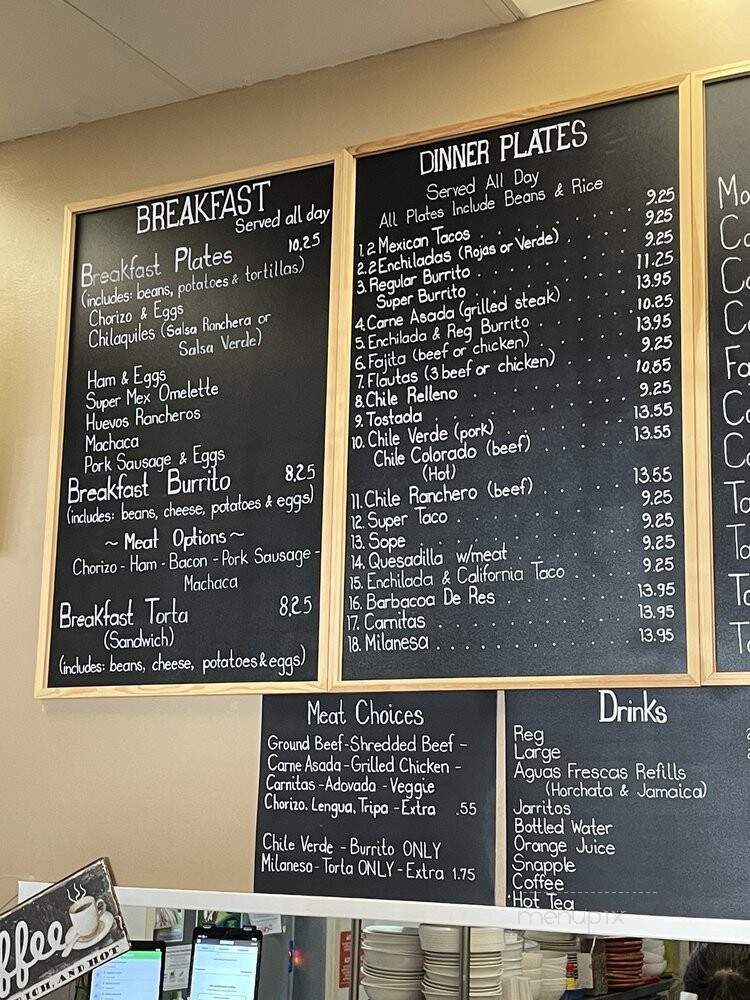 BREAKFAST
Served all day
Breakfast Plates 10.25
(includes: beans, potatoes & tortillas)
Chorizo & Eggs
Chilaquiles (Salsa Ranchera or
Salsa Verde)
Ham & Eggs
Super Mex Omelette
Huevos Rancheros
Machaca
Pork Sausage & Eggs
Breakfast Burrito 8.25
(includes: beans, cheese, potatoes & eggs)
~ Meat Options ~
Chorizo - Ham - Bacon - Pork Sausage -
Machaca
Breakfast Torta 8.25
(Sandwich)
(includes: beans, cheese, potatoes & eggs)
DINNER PLATES
Served All Day
All Plates Include Beans & Rice
1. 2 Mexican Tacos 9.25
2. 2 Enchiladas (Rojas or Verde) 9.25
3. Regular Burrito 9.25
Super Burrito 11.25
4. Carne Asada (grilled steak) 13.95
5. Enchilada & Reg Burrito 10.25
6. Fajita (beef or chicken) 13.95
7. Flautas (3 beef or chicken) 9.25
8. Chile Relleno 10.55
9. Tostada 9.25
10. Chile Verde (pork) 13.55
Chile Colorado (beef) 13.55
(Hot)
11. Chile Ranchero (beef) 13.55
12. Super Taco 9.25
13. Sope 9.25
14. Quesadilla w/meat 9.25
15. Enchilada & California Taco 9.25
16. Barbacoa De Res 13.95
17. Carnitas 13.95
18. Milanesa 13.95
Meat Choices
Ground Beef - Shredded Beef -
Carne Asada - Grilled Chicken -
Carnitas - Adovada - Veggie
Chorizo, Lengua, Tripa - Extra .55
Chile Verde - Burrito ONLY
Milanesa - Torta ONLY - Extra 1.75
Drinks
Reg
Large
Aguas Frescas Refills
(Horchata & Jamaica)
Jarritos
Bottled Water
Orange Juice
Snapple
Coffee
Hot Tea
menupix
AND HOT